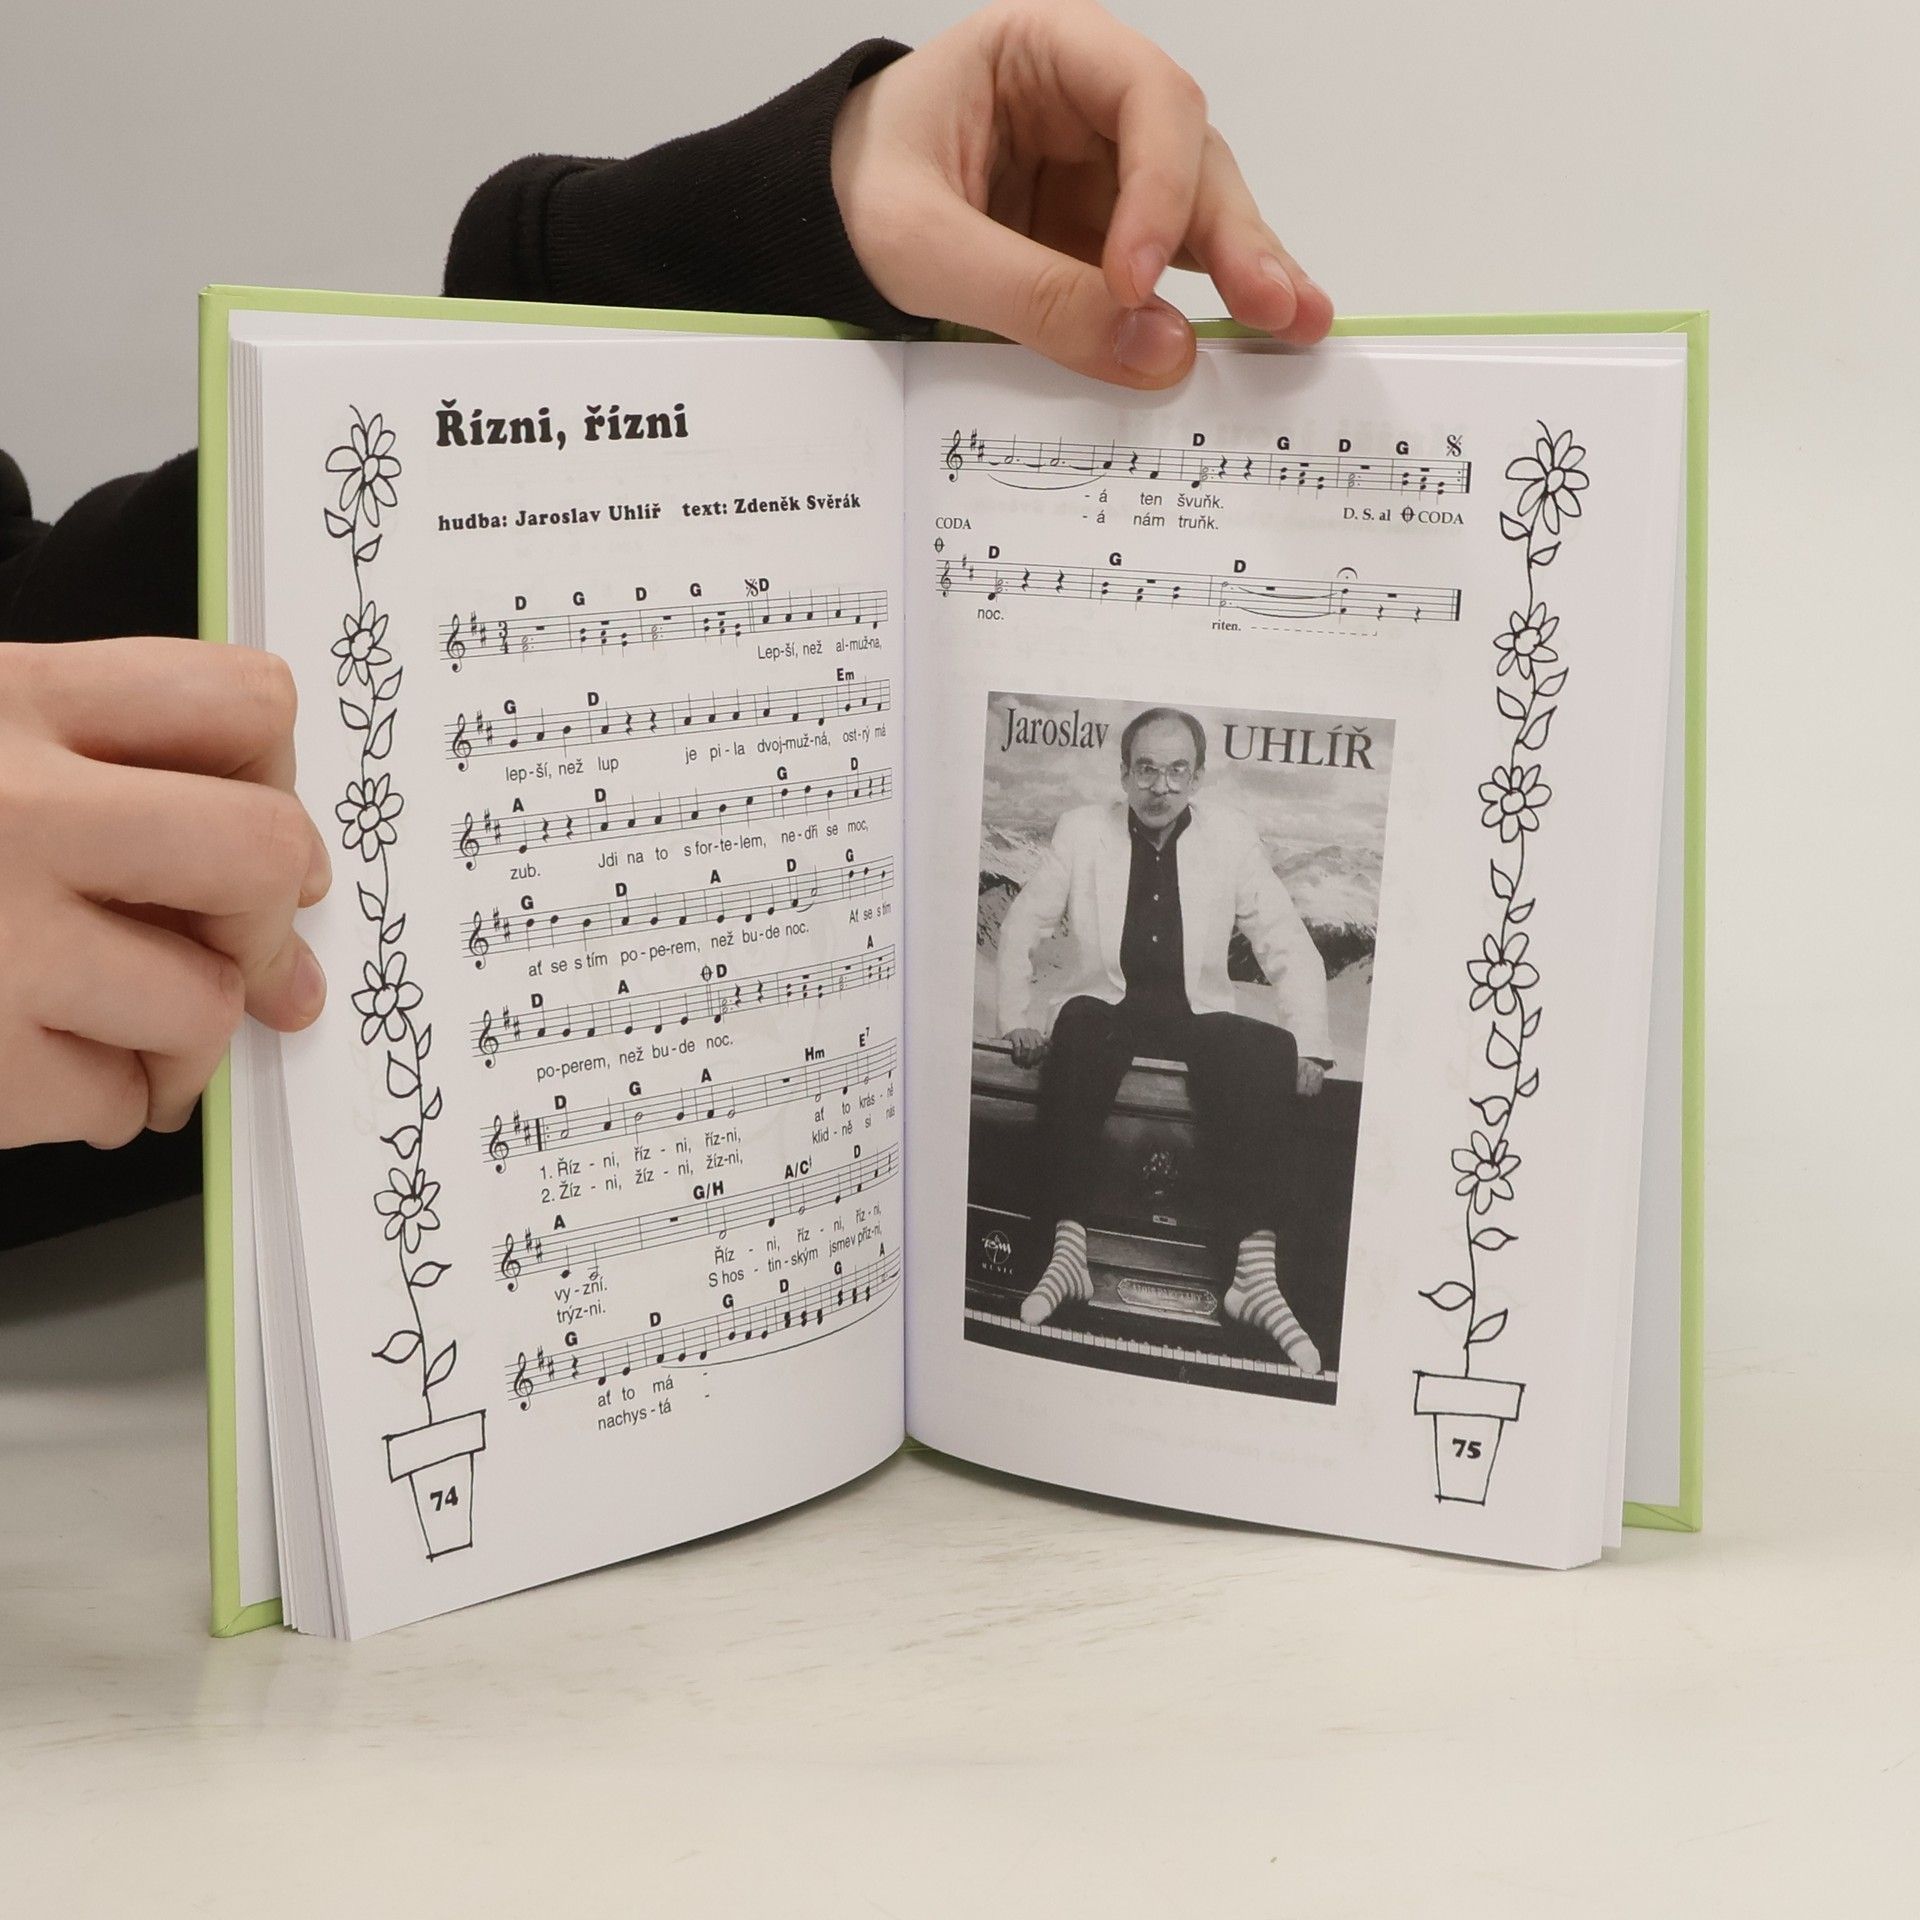 Řízni, řízni
hudba: Jaroslav Uhlíř text: Zdeněk Svěrák
D G D G D
3
4
Lep-ší, než al-muž-na,
G D Em
lep-ší, než lup je pi-la dvoj-muž-ná, ost-rý má
A D G D
zub. Jdi na to s for-te-lem, ne-dři se moc,
G D A D G
ať se s tím po-pe-rem, než bu-de noc. Ať se s tím
D A D A
po-perem, než bu-de noc.
D G A Hm E7
1. Říz - ni, říz - ni, říz-ni, ať to krás - ně
2. Žíz - ni, žíz - ni, žíz-ni, klid - ně si nás
A G/H A/C♯ D
vy-zní. Říz - ni, říz - ni, říz-ni,
trýz-ni. S hos - tin-ským jsme v příz-ni,
G D G D G A
ať to má -
nachys-tá -
74
D G D G
- á ten švuňk.
- á nám truňk. D. S. al CODA
CODA
D G D
noc. riten.
Jaroslav UHLÍŘ
MUSIC
75